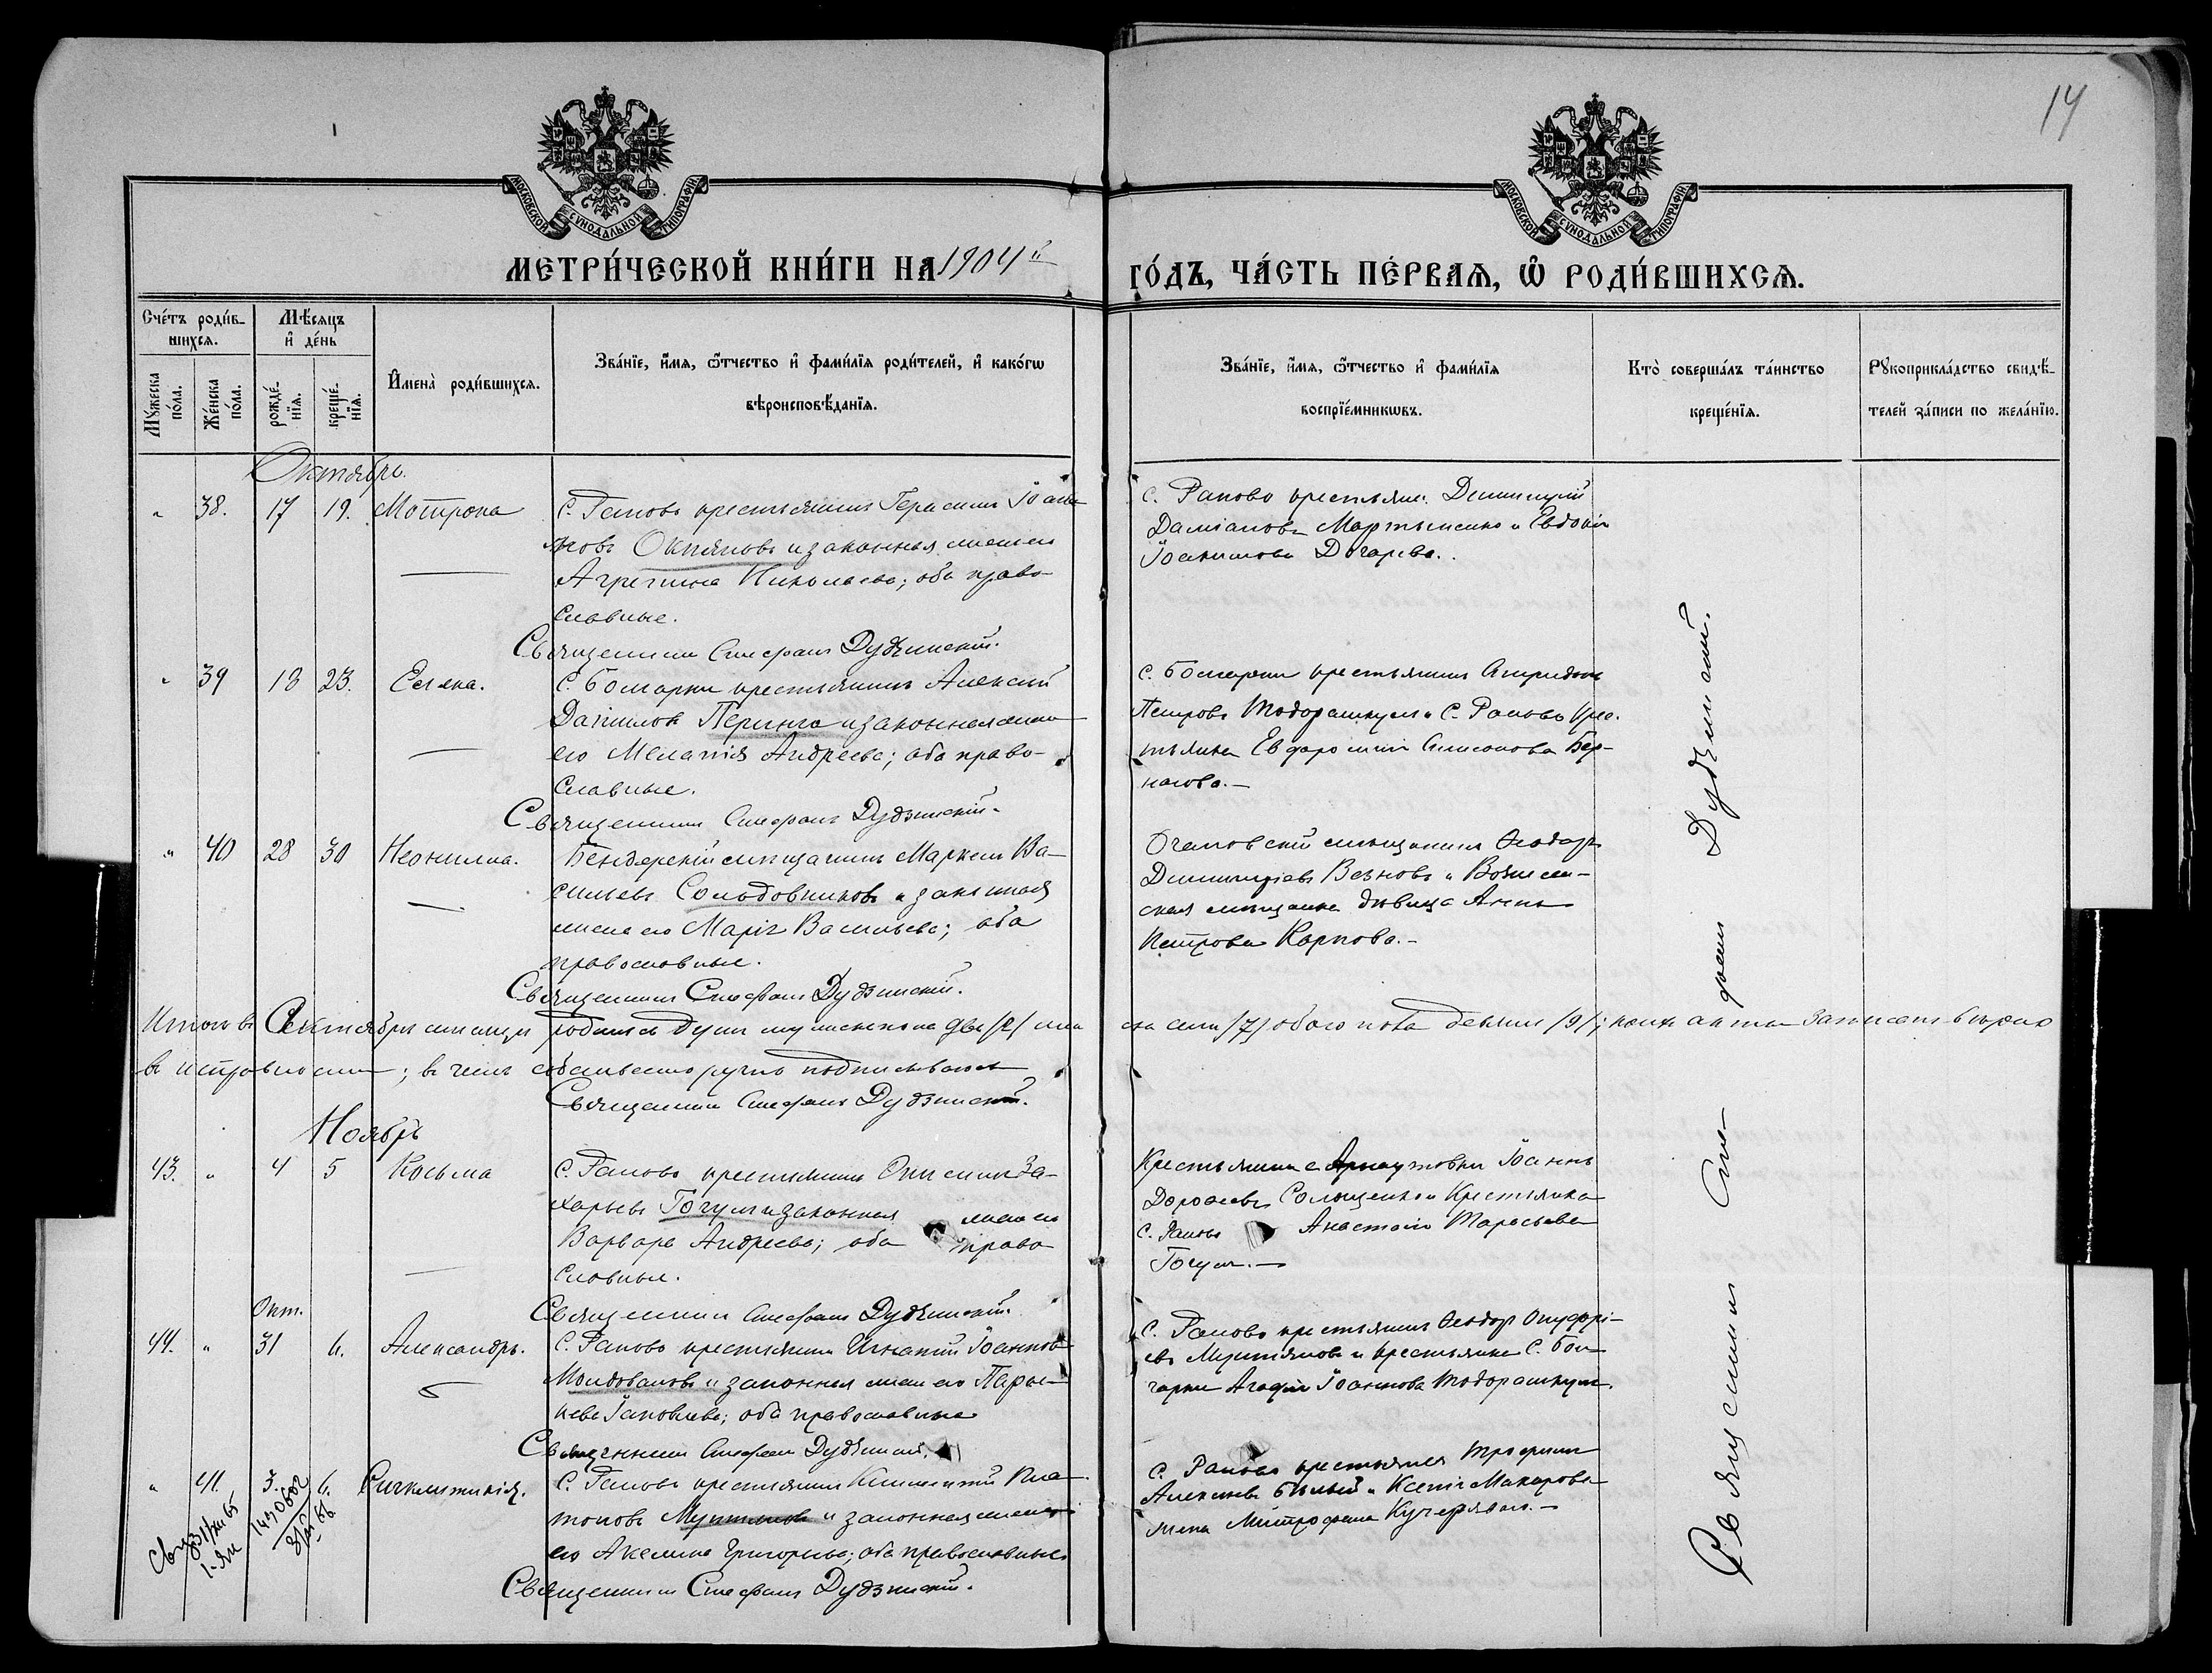 14
МОСКОВСКОЙ СУНОДАЛЬНОЙ ТИПОГРАФІИ
МОСКОВСКОЙ СУНОДАЛЬНОЙ ТИПОГРАФІИ
МЕТРИ́ЧЕСКОЙ КНИ́ГИ НА 1904й ГО́ДЪ, ЧА́СТЬ ПЕ́РВАѦ, Ѡ҆ РОДИ́ВШИХСѦ.
Сче́тъ роди́в-
шихсѧ.
Мꙋ́жеска по́ла.
Же́нска по́ла.
Мѣ́сѧцъ
и҆ де́нь
рожде́-
нїѧ.
креще́-
нїѧ.
И҆мена̀ роди́вшихсѧ.
Зва́нїе, и҆́мѧ, ѻ҆́тчество и҆ фами́лїѧ роди́телей, и҆ како́гѡ
вѣроисповѣ́данїѧ.
Зва́нїе, и҆́мѧ, ѻ҆́тчество и҆ фами́лїѧ
воспрїе́мникѡвъ.
Кто̀ соверша́лъ та́инство
креще́нїѧ.
Рꙋкоприкла́дство свидѣ́-
телей за́писи по жела́нїю.
Октябрь.
" 38. 17 19. Мотрона
С. Ранова крестьянинъ Герасимъ Іоан-
новъ Окпяновъ и законная жена его
Агрепина Николаева; оба право-
славные.
Священникъ Стефанъ Дудзинскій.
с. Раново крестьяне: Димитрій
Даміановъ Мартыненко и Евдокія
Іоакимова Догарева.
" 39 18 23. Евгена.
С. Болгарки крестьянинъ Алексій
Даніиловъ и законная жена
его Мелатія Андреева; оба право-
славные.
Священникъ Стефанъ Дудзинскій.
с. Болгарки крестьянинъ Спиридонъ
Петровъ Тодорашкулъ и С. Раново крес-
тьянка Евфросинія Симеонова Бер-
насова.-
" 40 28 30 Неонилла.
Бендерскій мѣщанинъ Маркелъ Ва-
сильевъ Солодовниковъ и законная
жена его Марія Васильева; оба
православные.
Священникъ Стефанъ Дудзинскій.
Очаковскій мѣщанинъ Ѳеодоръ
Димитріевъ Везновъ и Вознесен-
ская мѣщанка дѣвица Анна
Петрова Карпова.-
Итого въ Октябрѣ мѣсяцѣ родилось душъ мужеска пола два /2/ жен-
ска семь /7/ обоего пола девять /9/; коихъ акты записаны вѣрно
въ исправности; въ чемъ собственноручно подписываюсь
Священникъ Стефанъ Дудзинскій.
Ноябрь
43. " 4 5 Косьма
С. Раново крестьянинъ Онисимъ За-
харьевъ Гогулъ и законная жена его
Варвара Андреева; оба право
славные.
Священникъ Стефанъ Дудзинскій.
Крестьянинъ с. Арнаутовки Іоаннъ
Дороѳеевъ Солощенко и Крестьянка
С. Раново Анастасія Тарасьева
Гогулъ.-
Окт.
44. " 31 6. Александръ.
С. Раново крестьянинъ Игнатій Іоанновъ
Молдовановъ и законная жена его Парас-
кева Іаковлева; оба православные
Священникъ Стефанъ Дудзинскій.
С. Раново крестьянинъ Ѳеодоръ Онуфрі-
евъ Мунтяновъ и крестьянка С. Бол-
гарки Агафія Іоаннова Тодорашкулъ.
" 41. 3. 6. Сигклитикія.
С. Раново крестьянинъ Климентій Пла-
тоновъ Мунтяновъ и законная жена
его Акелина Григорьева; оба православные
Священникъ Стефанъ Дудзинскій.
С. Раново крестьяне Трофимъ
Алексѣевъ Бѣлый и Ксенія Макарова
жена Митрофана Кучеряваго.-
Священникъ Сте-
фанъ Дудзинскій.